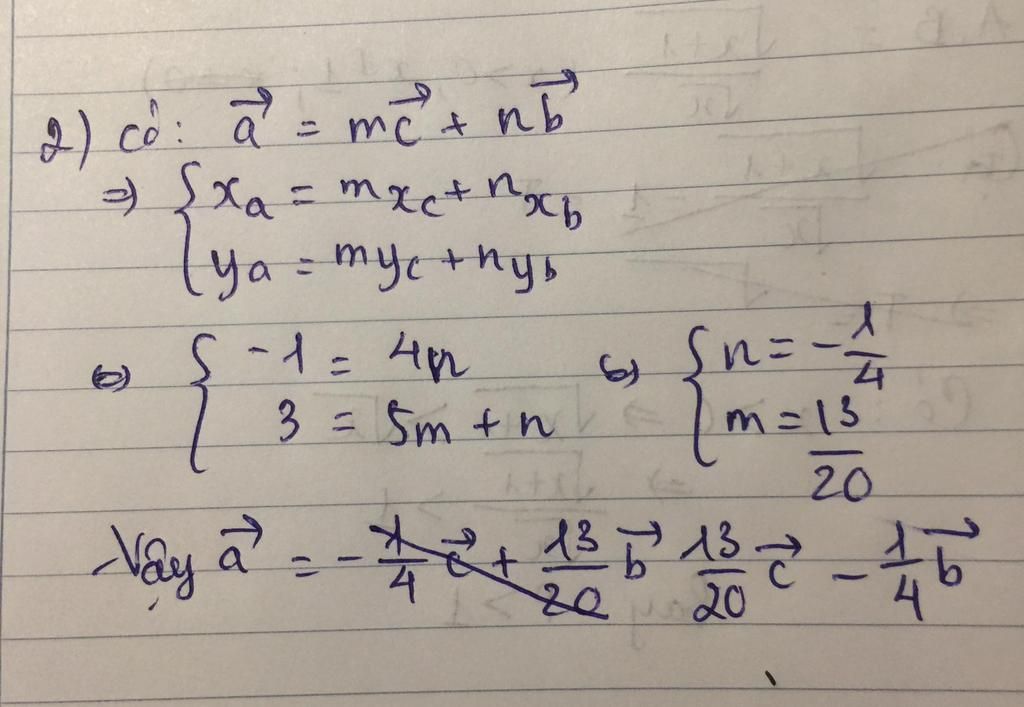 2) Có: a⃗ = mc⃗ + nb⃗
⇒ { x_a = mx_c + nx_b
y_a = my_c + ny_b
⇔ { -1 = 4n ⇔ { n = -1/4
3 = 5m + n m = 13/20
Vậy a⃗ = -1/4 c⃗ + 13/20 b⃗ 13/20 c⃗ - 1/4 b⃗